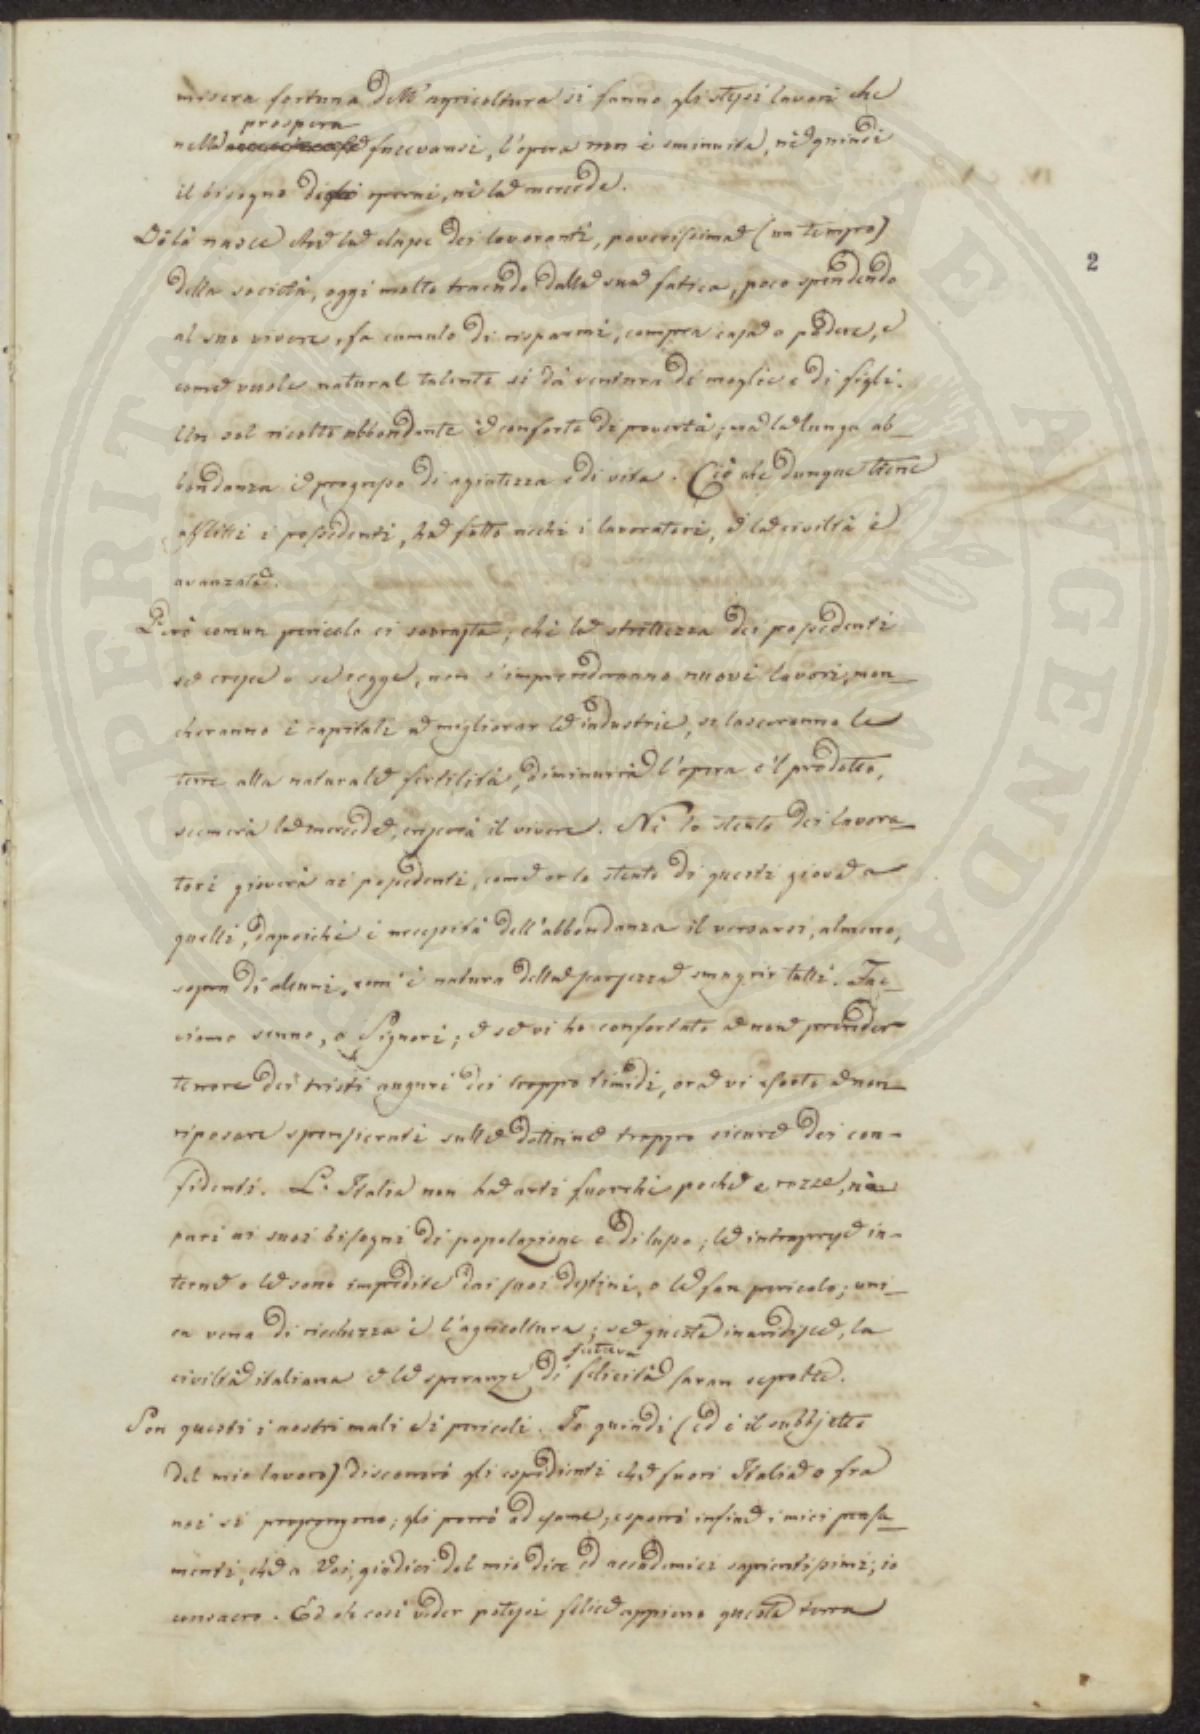 misera fortuna dell'agricoltura si fanno gli stessi lavori che
prospera
nella facevansi, l'opera non è sminuita, nè quindi
il bisogno di operai, nè la mercede.
Dalà nasce che la classe dei lavoranti, poverissima (un tempo)
2
della società, oggi molto traendo dalla sua fatica, poco spendendo
al suo vivere, fa cumulo di risparmi, compra casa o podere, e
come vuole natural talento si dà ventura di moglie e di figli.
Un sol ricolto abbondante è conforto di povertà; ma la lunga ab-
bondanza è progresso di agiatezza e di vita. Ciò che dunque tiene
afflitti i possidenti, ha fatto ricchi i lavoratori, e la civiltà è
avanzata.
Però comun pericolo ci sovrasta; chè la strettezza dei possidenti
se cresce o se regge, non s'imprenderanno nuovi lavori, man-
cheranno i capitali a migliorar le industrie, si lasceranno le
terre alla naturale fertilità, diminuirà l'opera e 'l prodotto,
scemerà la mercede, crescerà il vivere. Nè lo stento dei lavora-
tori gioverà ai possidenti, come or lo stento di questi giova a
quelli, dapoichè è necessità dell'abbondanza il versarsi, almeno,
sopra di alcuni, com'è natura della scarsezza smagrir tutti. Fac-
ciamo senno, o Signori; e se vi ho confortato a non prender
terrore dei tristi auguri dei troppo timidi, ora vi esorto a non
riposare spensierati sulle dottrine troppo sicure dei con-
fidenti. L'Italia non ha arti fuorchè poche e rozze, nè
pari ai suoi bisogni di popolazione e di lusso; le intraprese in-
terne o le sono impedite dai suoi destini, o le son pericolo; uni-
ca vena di ricchezza è l'agricoltura; se questa inaridisce, la
futura
civiltà italiana e le speranze di felicità saran sepolte.
Son questi i nostri mali e i pericoli. Io quindi (ed è il subbjetto
del mio lavoro) discorrerò gli espedienti che fuori Italia o fra
noi si propongono; gli porrò ad esame; esporrò infine i miei pensa-
menti, che a Voi, giudici del mio dire ed accademici sapientissimi, io
consacro. Ed oh così veder potessi felice appieno questa terra